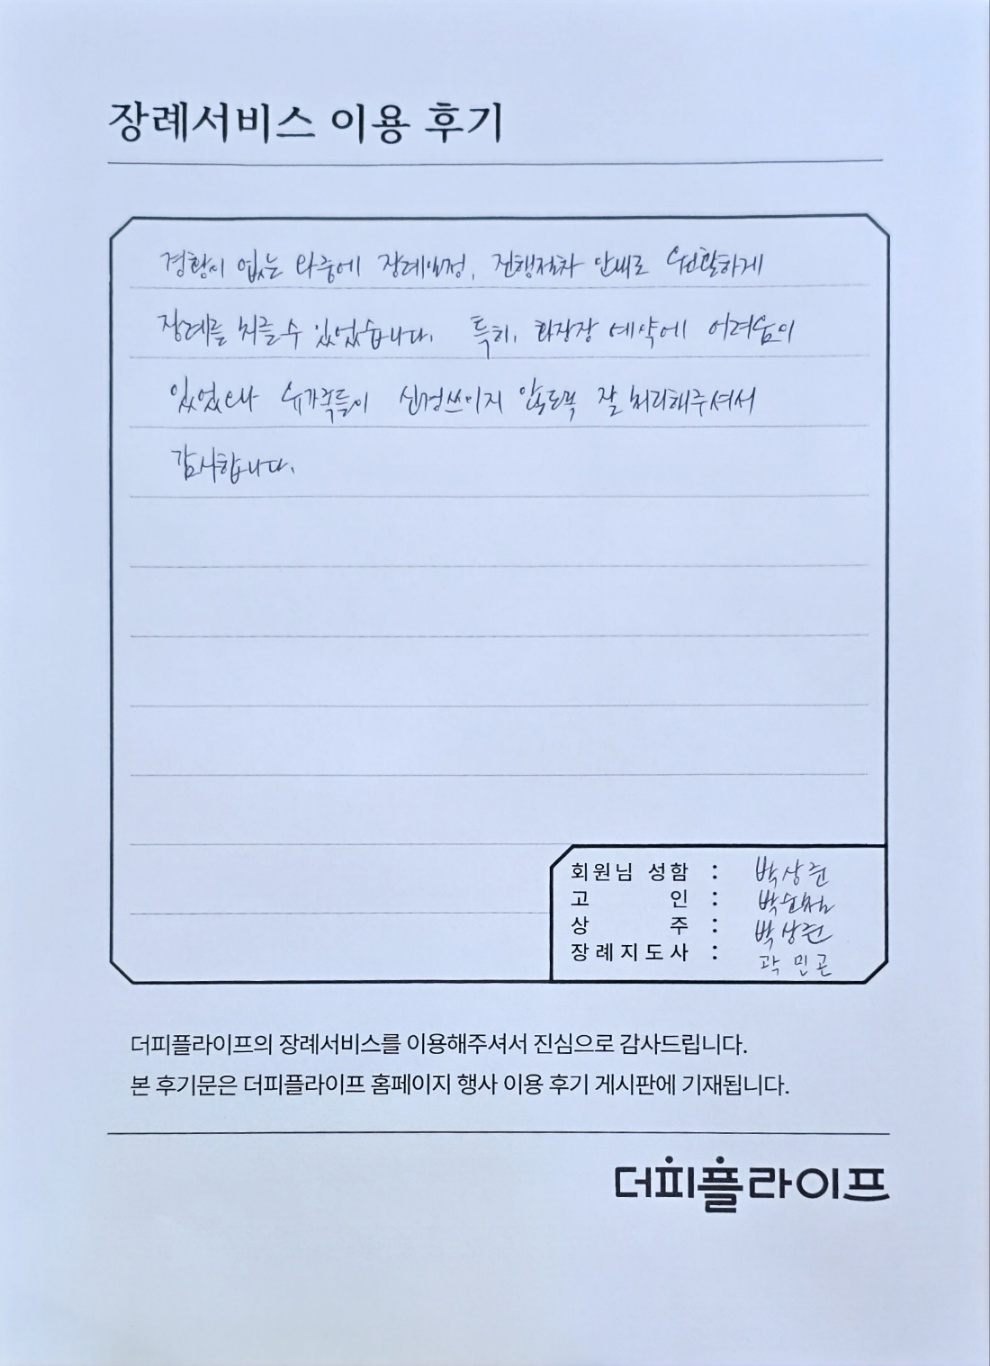 장례서비스 이용 후기
경황이 없는 와중에 장례일정, 진행절차 안내로 원활하게
장례를 치를 수 있었습니다. 특히, 화장장 예약에 어려움이
있었으나 유가족들이 신경쓰이지 않도록 잘 처리해주셔서
감사합니다.
회원님 성함 : 박상원
고 인 :
상 주 : 박상원
장례지도사 : 곽민곤
더피플라이프의 장례서비스를 이용해주셔서 진심으로 감사드립니다.
본 후기문은 더피플라이프 홈페이지 행사 이용 후기 게시판에 기재됩니다.
더피플라이프